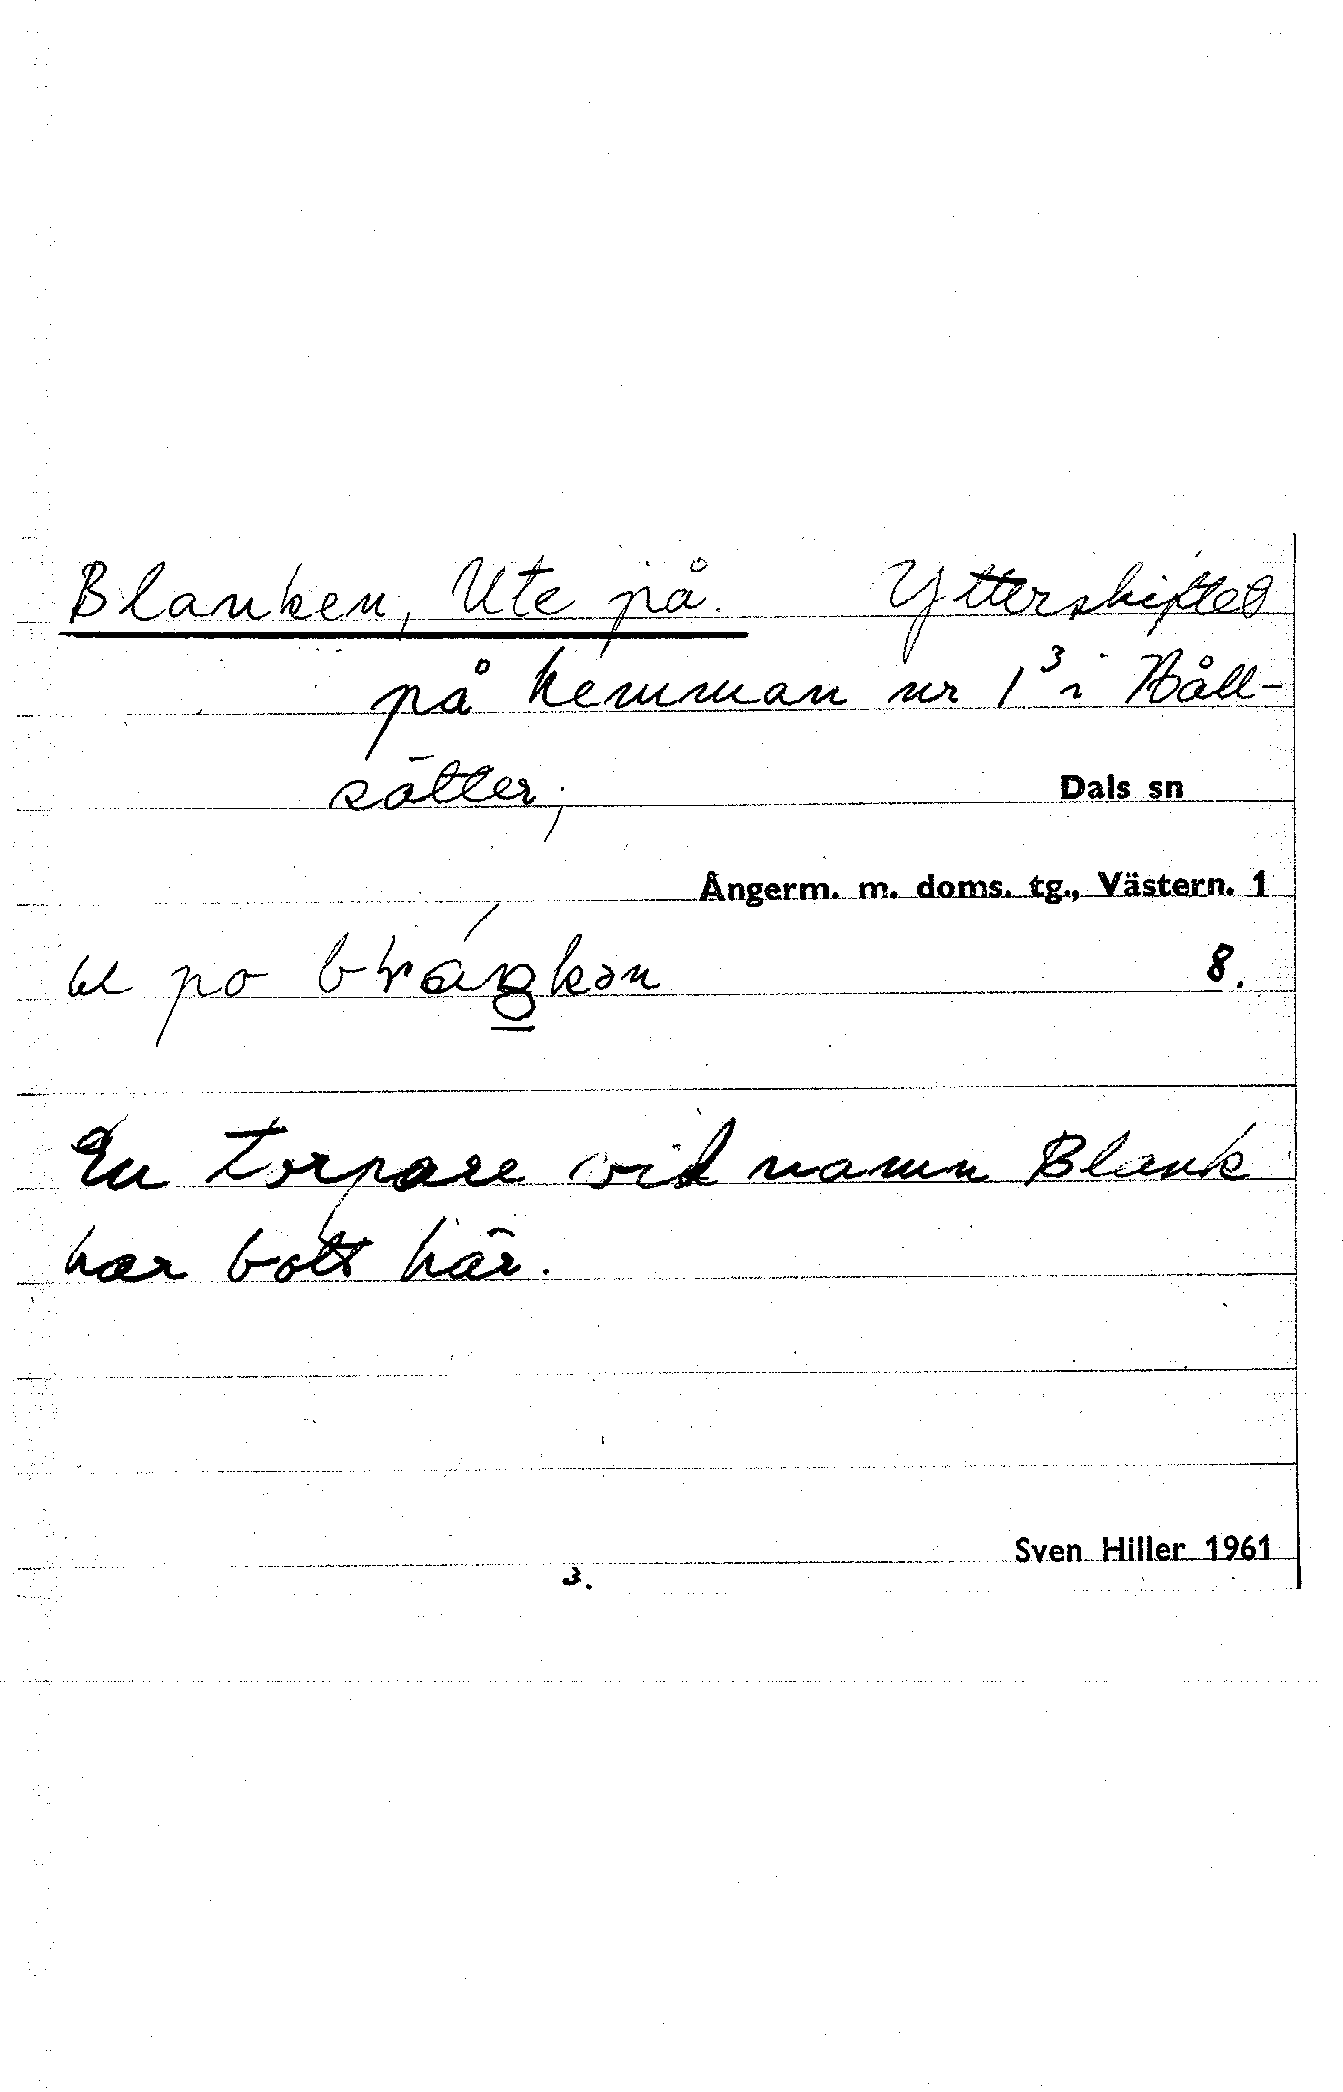 Blanken, Ute på. Ytterskiftet
på hemman nr 1³ i Håll-
sätter;
Dals sn
Ångerm. m. doms. tg., Västern. 1
po 8.
En torpare vid namn Blank
har bott här.
Sven Hiller 1961
3.